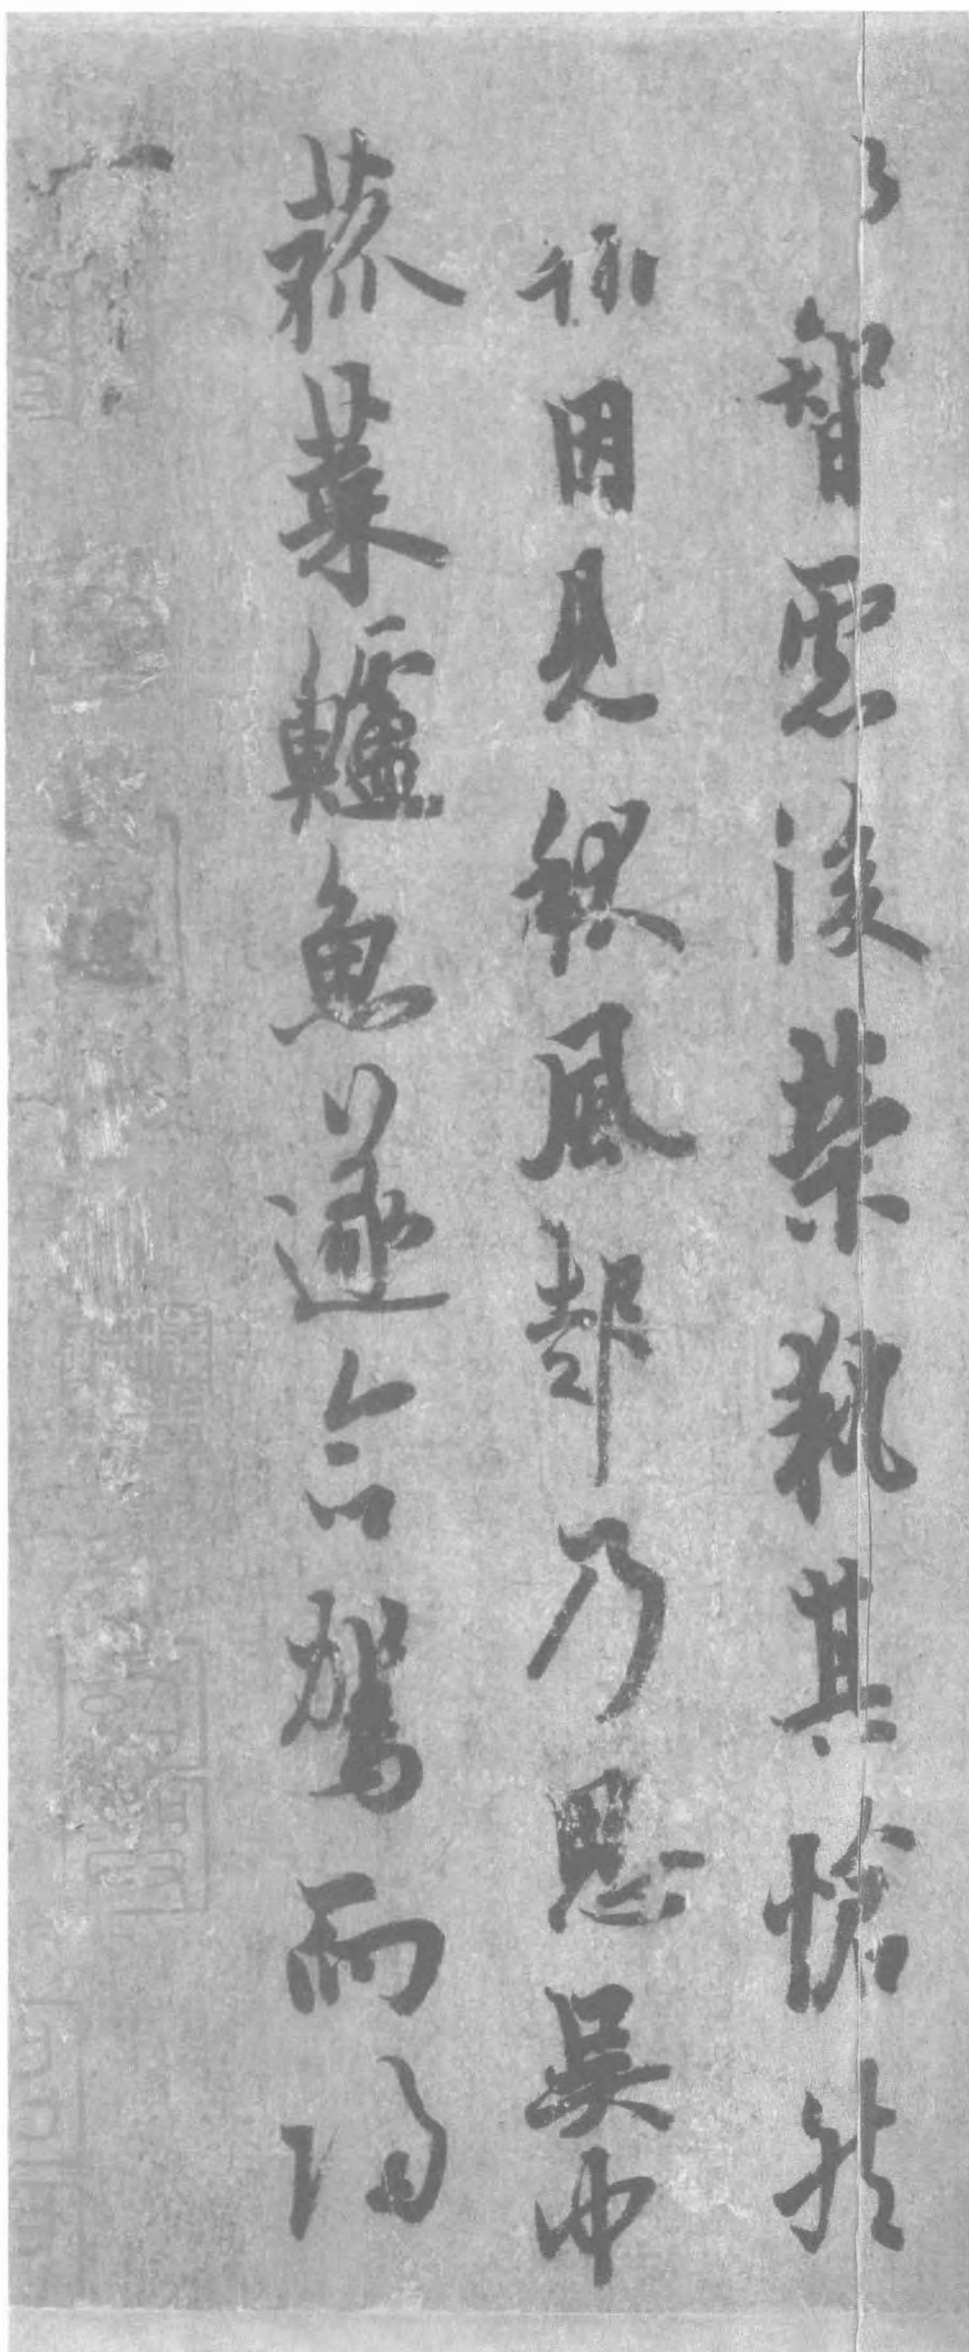 以智慮後榮執其愴然
因見秋風起乃思吳中
菰菜鱸魚遂命駕而歸